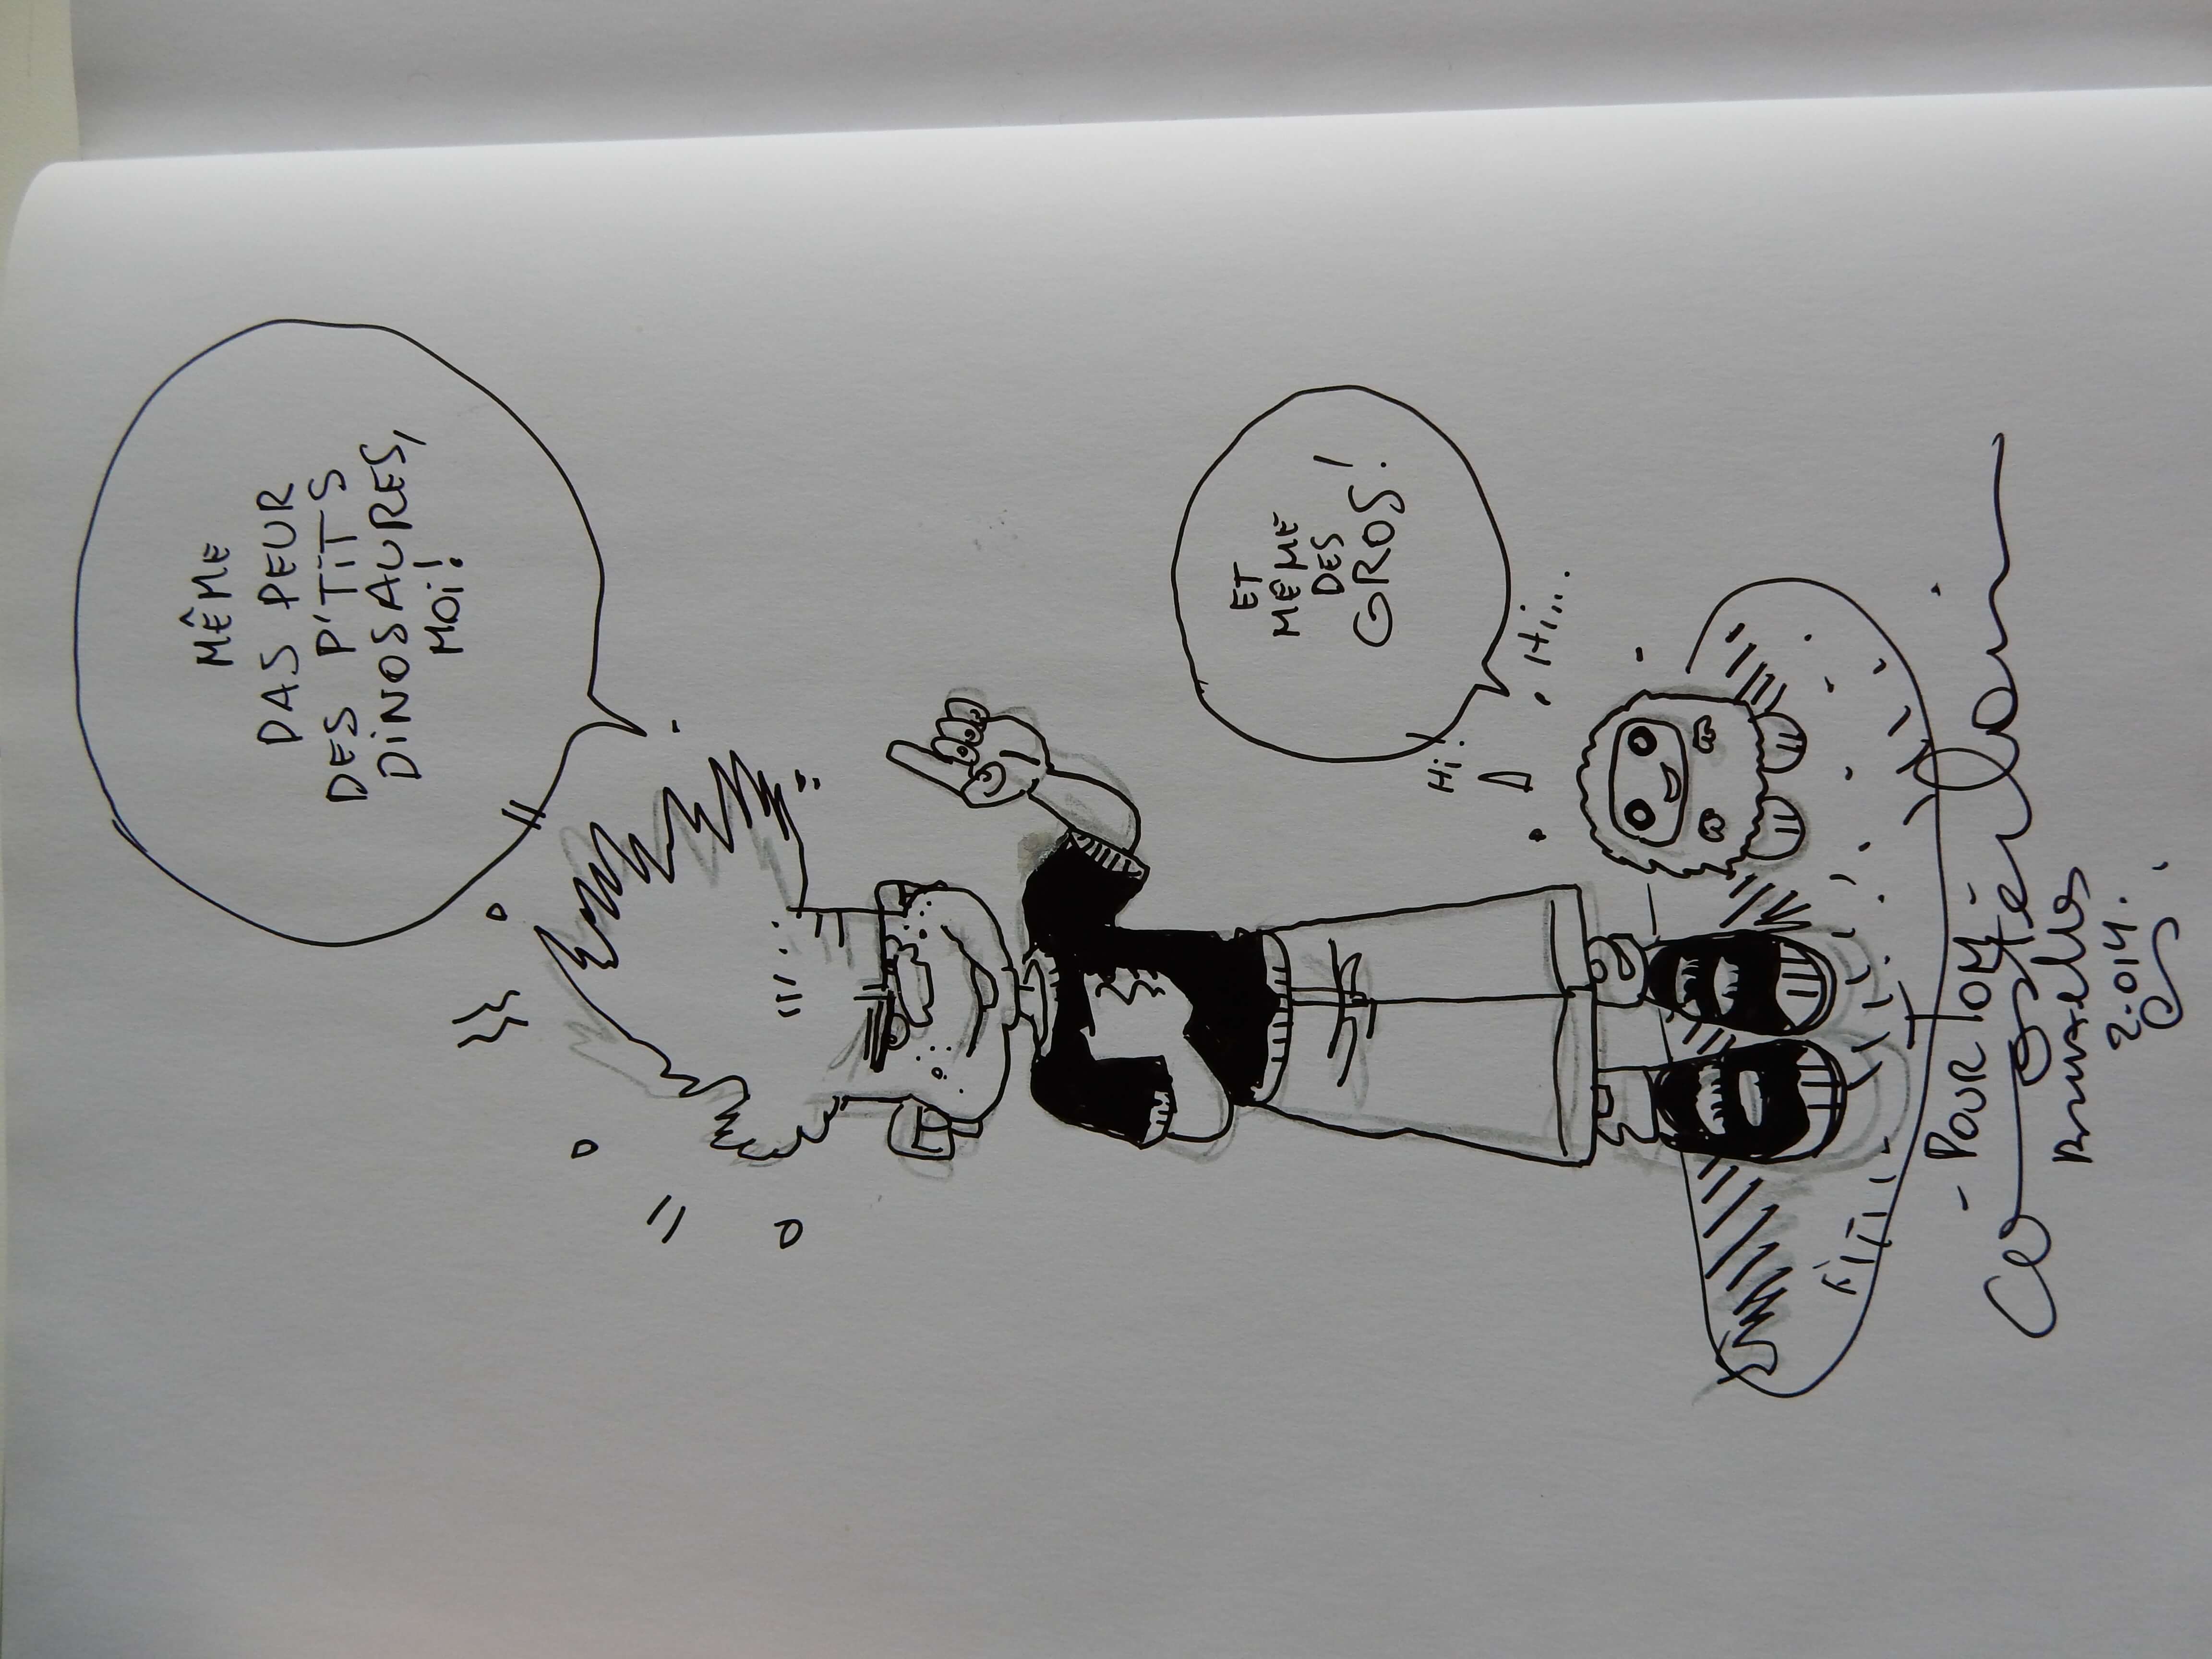 MÊME
PAS PEUR
DES P'TITS
DINOSAURES,
MOI!
ET
MEME
DES
GROS!
Hi!
Hi...
- POUR TOM -
Bruxelles
2.014.